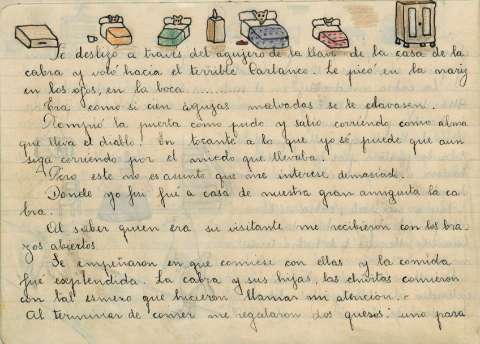 Se deslizó a través del agujero de la llave de la casa de la
cabra y voló hacia el terrible barbanco. Le picó en la nariz
en los ojos, en la boca........
Era como si cien agujas malvadas se le clavasen.
Rompió la puerta como pudo y salio corriendo como alma
que lleva el diablo. En tocante a lo que yo sé puede que aun
siga corriendo por el miedo que llevaba.
Pero este no es asunto que me interese demasiad.
Donde yo fui fué a casa de nuestra gran amiguita la ca
bra.
Al saber quien era su visitante me recibieron con los bra
zos abiertos
Se empeñaron en que comiese con ellas y la comida
fue explendida. La cabra y sus hijas, las chivitas comieron
con tal esmero que hicieron llamar mi atención.
Al terminar de comer me regalaron dos quesos: uno para